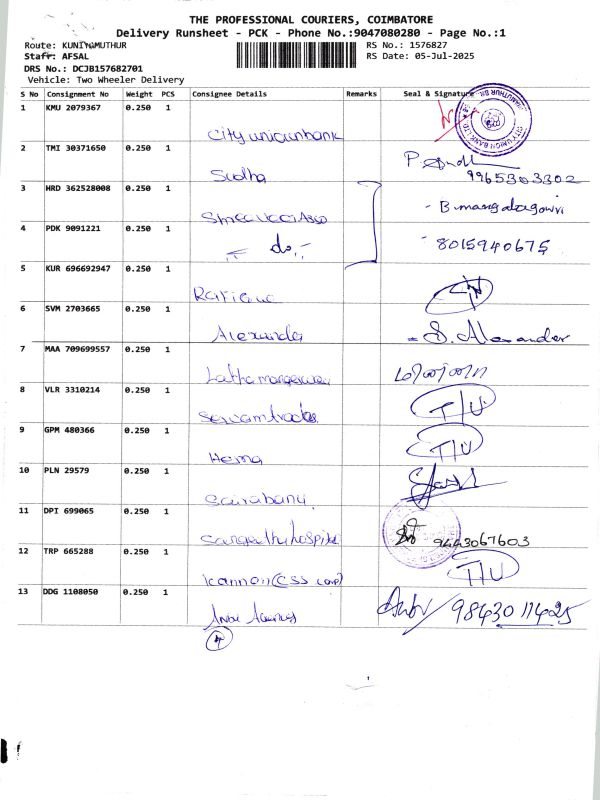 THE PROFESSIONAL COURIERS, COIMBATORE
Delivery Runsheet - PCK - Phone No.:9047080280 - Page No.:1
Route: KUNIYAMUTHUR RS No.: 1576827
Staff: AFSAL RS Date: 05-Jul-2025
DRS No.: DCJB157682701
Vehicle: Two Wheeler Delivery
S No Consignment No Weight PCS Consignee Details Remarks Seal & Signature
1 KMU 2079367 0.250 1 City unionbank
CITY UNION BANK LTD
2 TMI 30371650 0.250 1 Sudha 9965303302
3 HRD 362528008 0.250 1 B.mangalagowri
4 PDK 9091221 0.250 1 do 8015940675
5 KUR 696692947 0.250 1
6 SVM 2703665 0.250 1 Alexander S. Alexander
7 MAA 709699557 0.250 1
8 VLR 3310214 0.250 1 T/U
9 GPM 480366 0.250 1 Hema T/U
10 PLN 29579 0.250 1 Sairabanu
11 DPI 699065 0.250 1 9443067603
12 TRP 665288 0.250 1 Kannan (CSS corp) T/U
13 DDG 1108050 0.250 1 9843011425
4